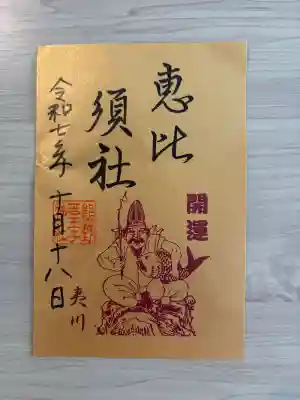 恵比
須社
開運
令和七年十月十八日
夷川